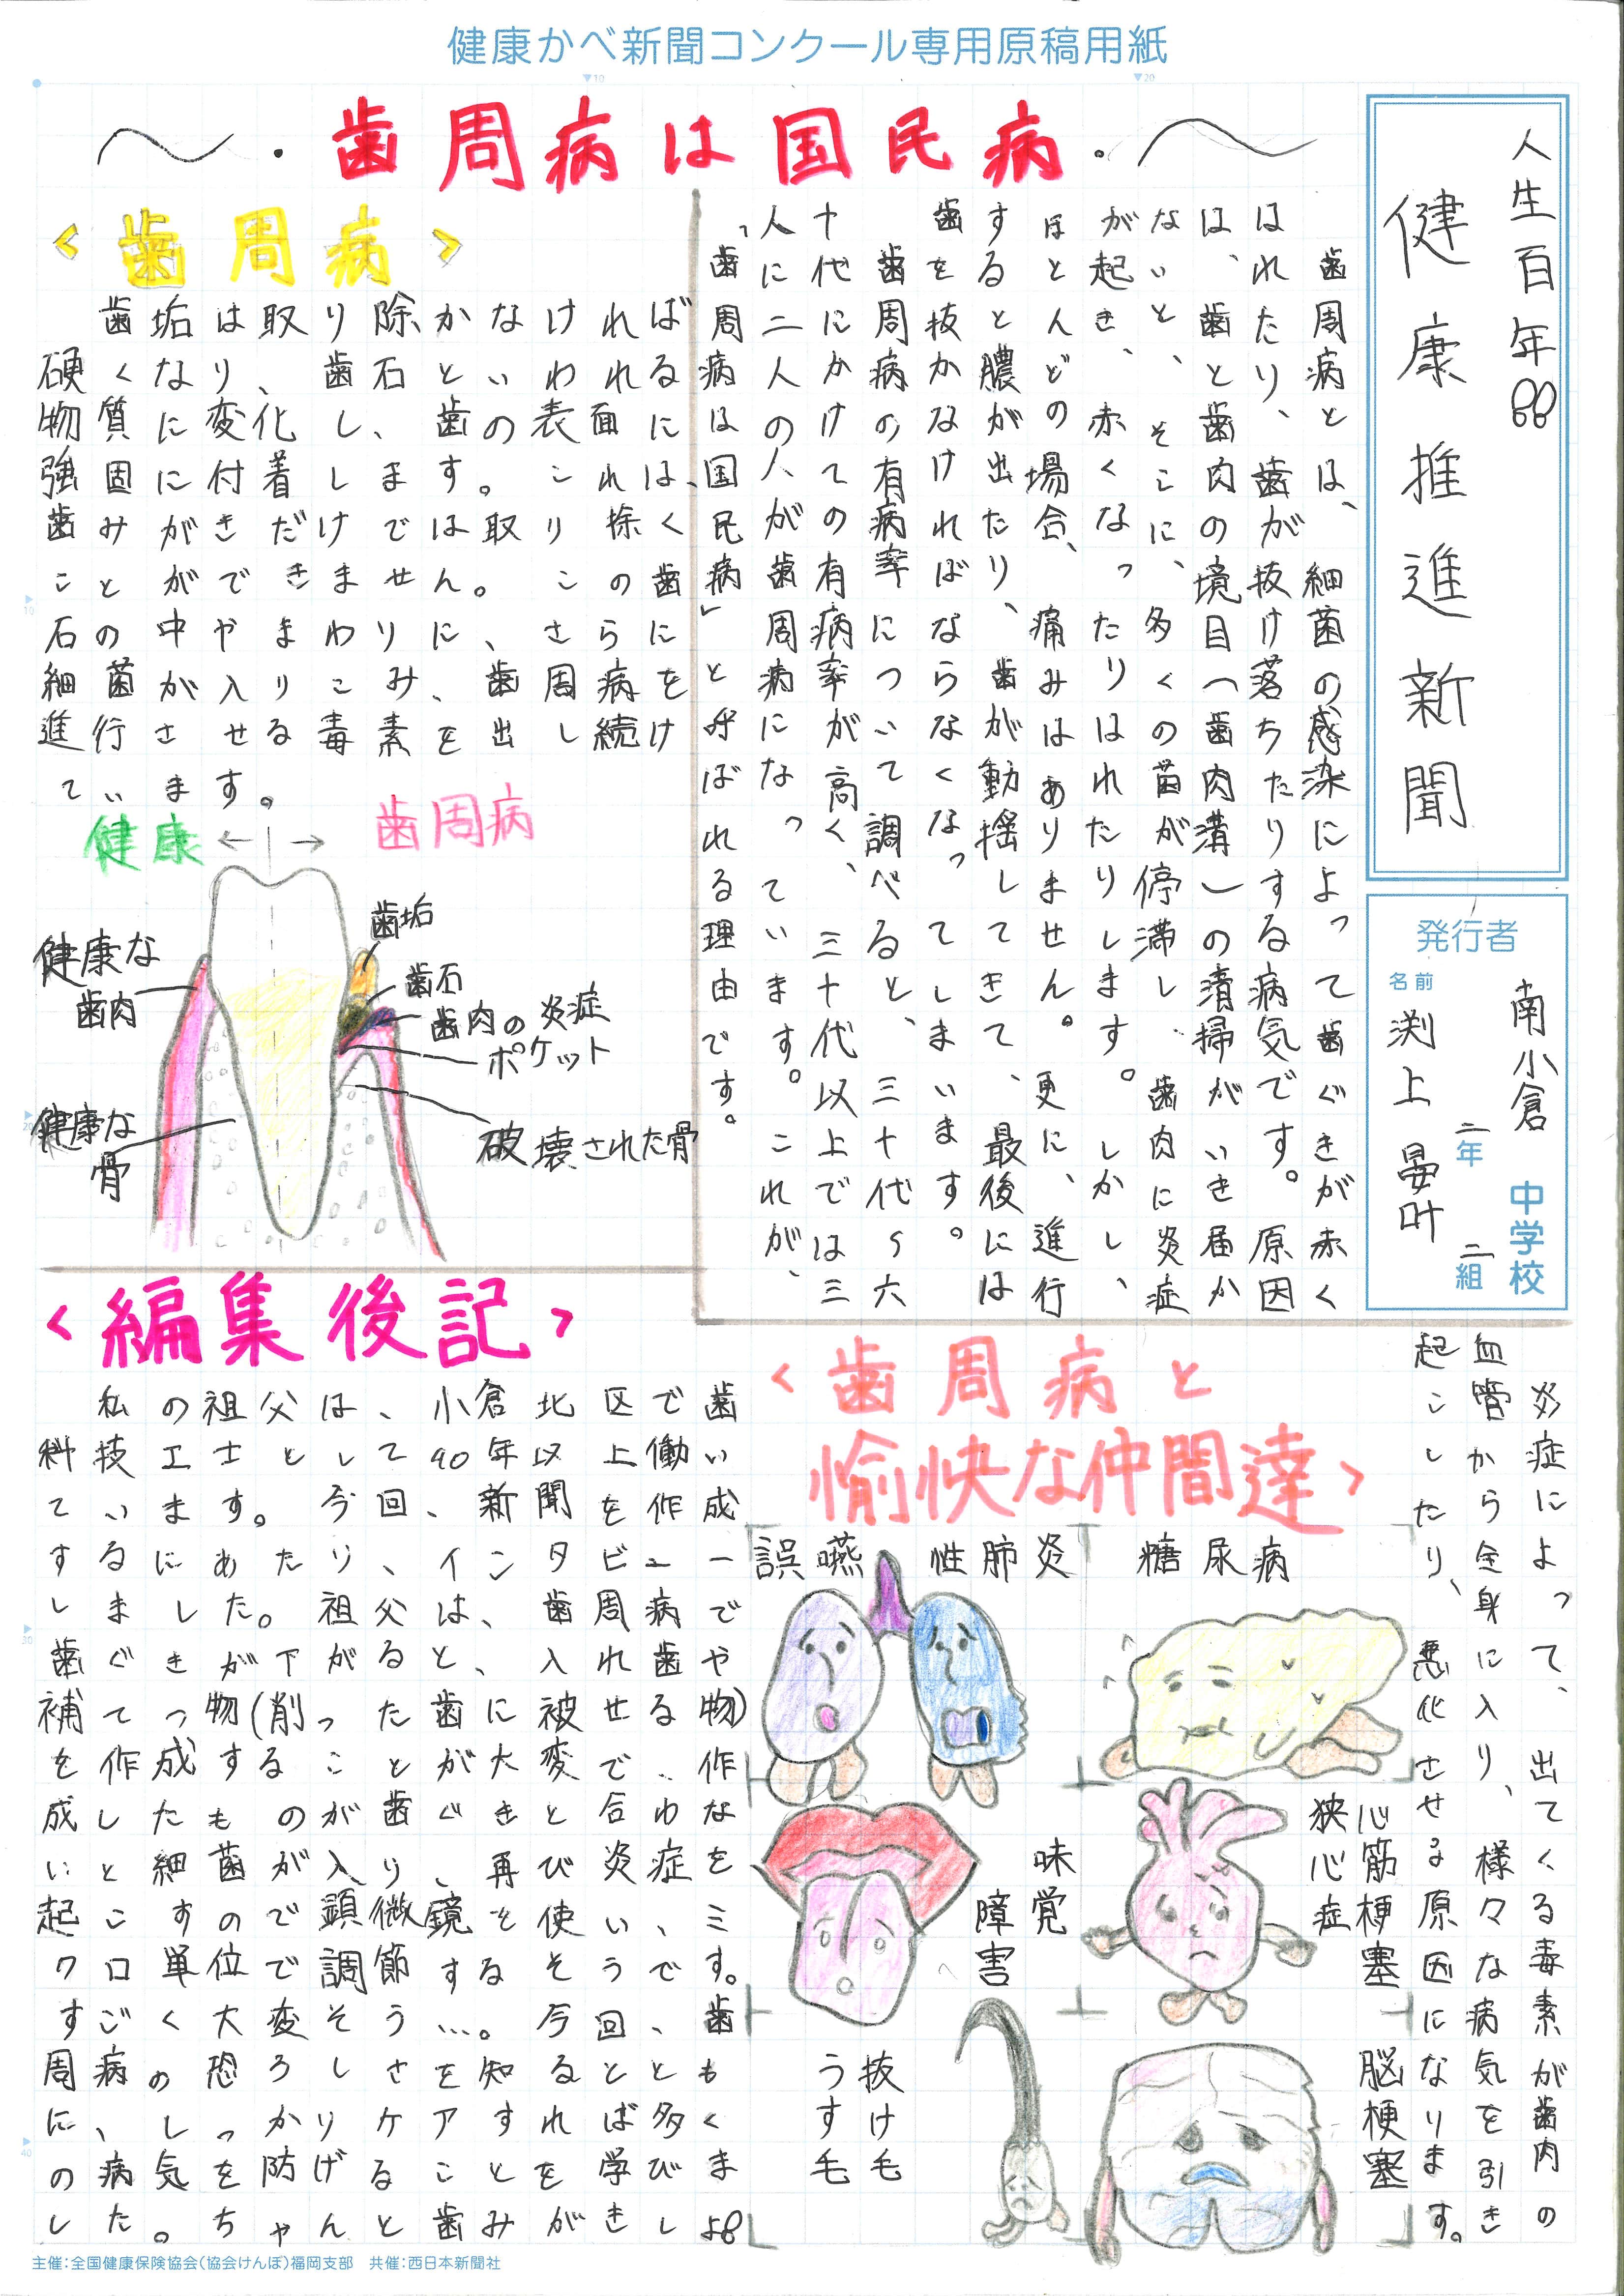 健康かべ新聞コンクール専用原稿用紙
人生百年
健康推進新聞
発行者
南小倉 中学校
二年 二組
名前
渕上 晏叶
〜・歯周病は国民病・〜
歯周病とは、細菌の感染によって歯ぐきが赤く
はれたり、歯が抜け落ちたりする病気です。原因
は、歯と歯肉の境目(歯肉溝)の清掃がいき届か
ないと、そこに、多くの菌が停滞し、歯肉に炎症
が起き、赤くなったりはれたりします。しかし、
ほとんどの場合、痛みはありません。更に、進行
すると膿が出たり、歯が動揺してきて、最後には
歯を抜かなければならなくなってしまいます。
歯周病の有病率について調べると、三十代〜六
十代にかけての有病率が高く、三十代以上では三
人に二人の人が歯周病になっています。これが、
「歯周病は国民病」と呼ばれる理由です。
<歯周病>
歯垢は取り除かなければ
硬くなり、歯石といわれる
物質に変化し、歯の表面に
強固に付着します。これは、
歯みがきだけでは取り除く
ことができません。この歯
石の中やまわりに、さらに
細菌が入りこみ、歯周病を
進行させる毒素を出し続け
ています。
健康 ← → 歯周病
健康な
歯肉
健康な
骨
歯垢
歯石
歯肉の炎症
ポケット
破壊された骨
<歯周病と
愉快な仲間達>
炎症によって、出てくる毒素が歯肉の
血管から全身に入り、様々な病気を引き
起こしたり、悪化させる原因になります。
糖尿病
誤嚥性肺炎
心筋梗塞
狭心症
味覚
障害
脳梗塞
抜け毛
うす毛
<編集後記>
私の祖父は、小倉北区で歯
科技工士として40年以上働い
ています。今回、新聞を作成
するにあたり、インタビュー
しました。祖父は、歯周病で
歯ぐきが下がると、入れ歯や
補てつ物(削った歯に被せる物)
を作成することが大変で、作
成したものが歯ぐきと合わな
いと細菌が入り、再び炎症を
起こすので顕微鏡を使い、ミ
クロ単位で調節するそうです。
すごく大変そう…。今回、歯
周病の恐ろしさを知るととも
に、しっかりケアすれば多く
の病気を防げることを学びま
した。ちゃんと歯みがきしよ
主催:全国健康保険協会(協会けんぽ)福岡支部 共催:西日本新聞社